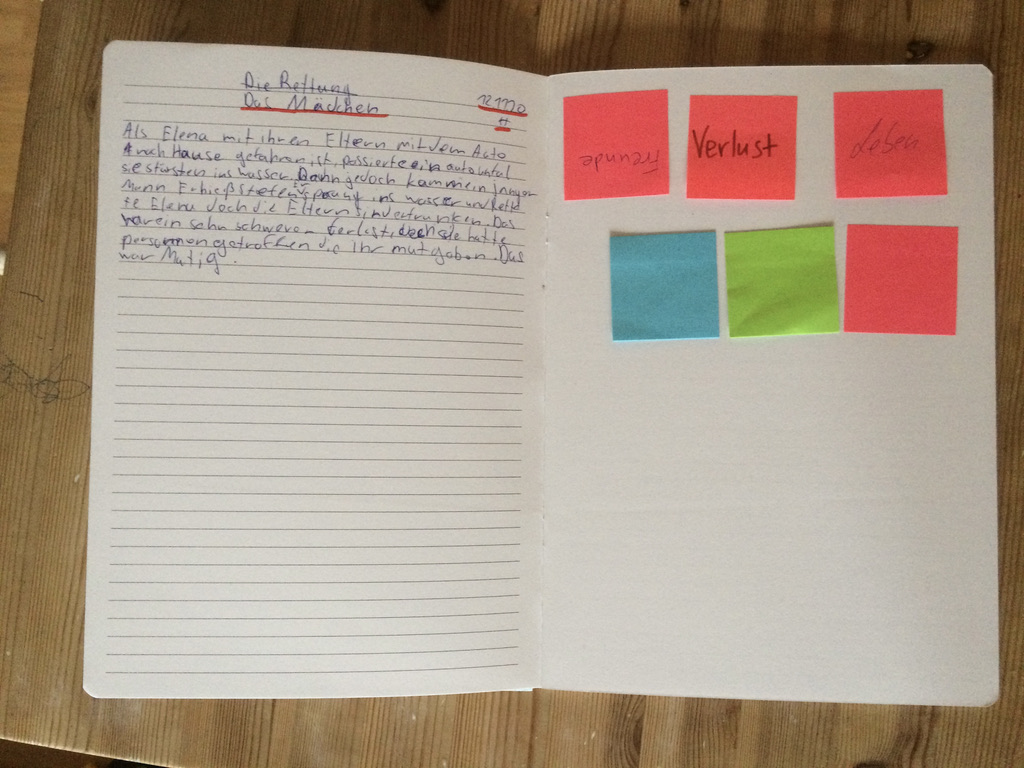 Die Rettung
Das Mädchen
Als Elena mit ihren Eltern mit dem Auto
nach Hause gefahren ist, passierte ein autounfal
sie stürsten ins wasser. Dann jedoch kamm ein Junger
Mann Er hieß stefen sprang ins wasser und Rette
te Elena doch die Eltern sind ertrunken. Das
war ein sehn schwerer ferlust, doch ste hatte
personnen getroffen die Ihr mut gaben. Das
war Mutig.
Freunde
Verlust
Leben